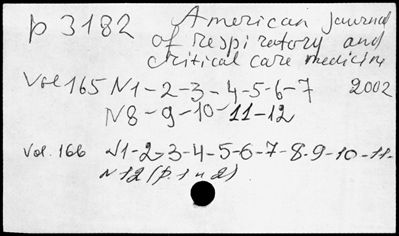 p 3182 American journal
of respiratory and
critical care medicine
Vol 165 N1-2-3-4-5-6-7 2002
N8-9-10-11-12
Vol. 166 N1-2-3-4-5-6-7-8-9-10-11-
N12 (p. 1 и 2)